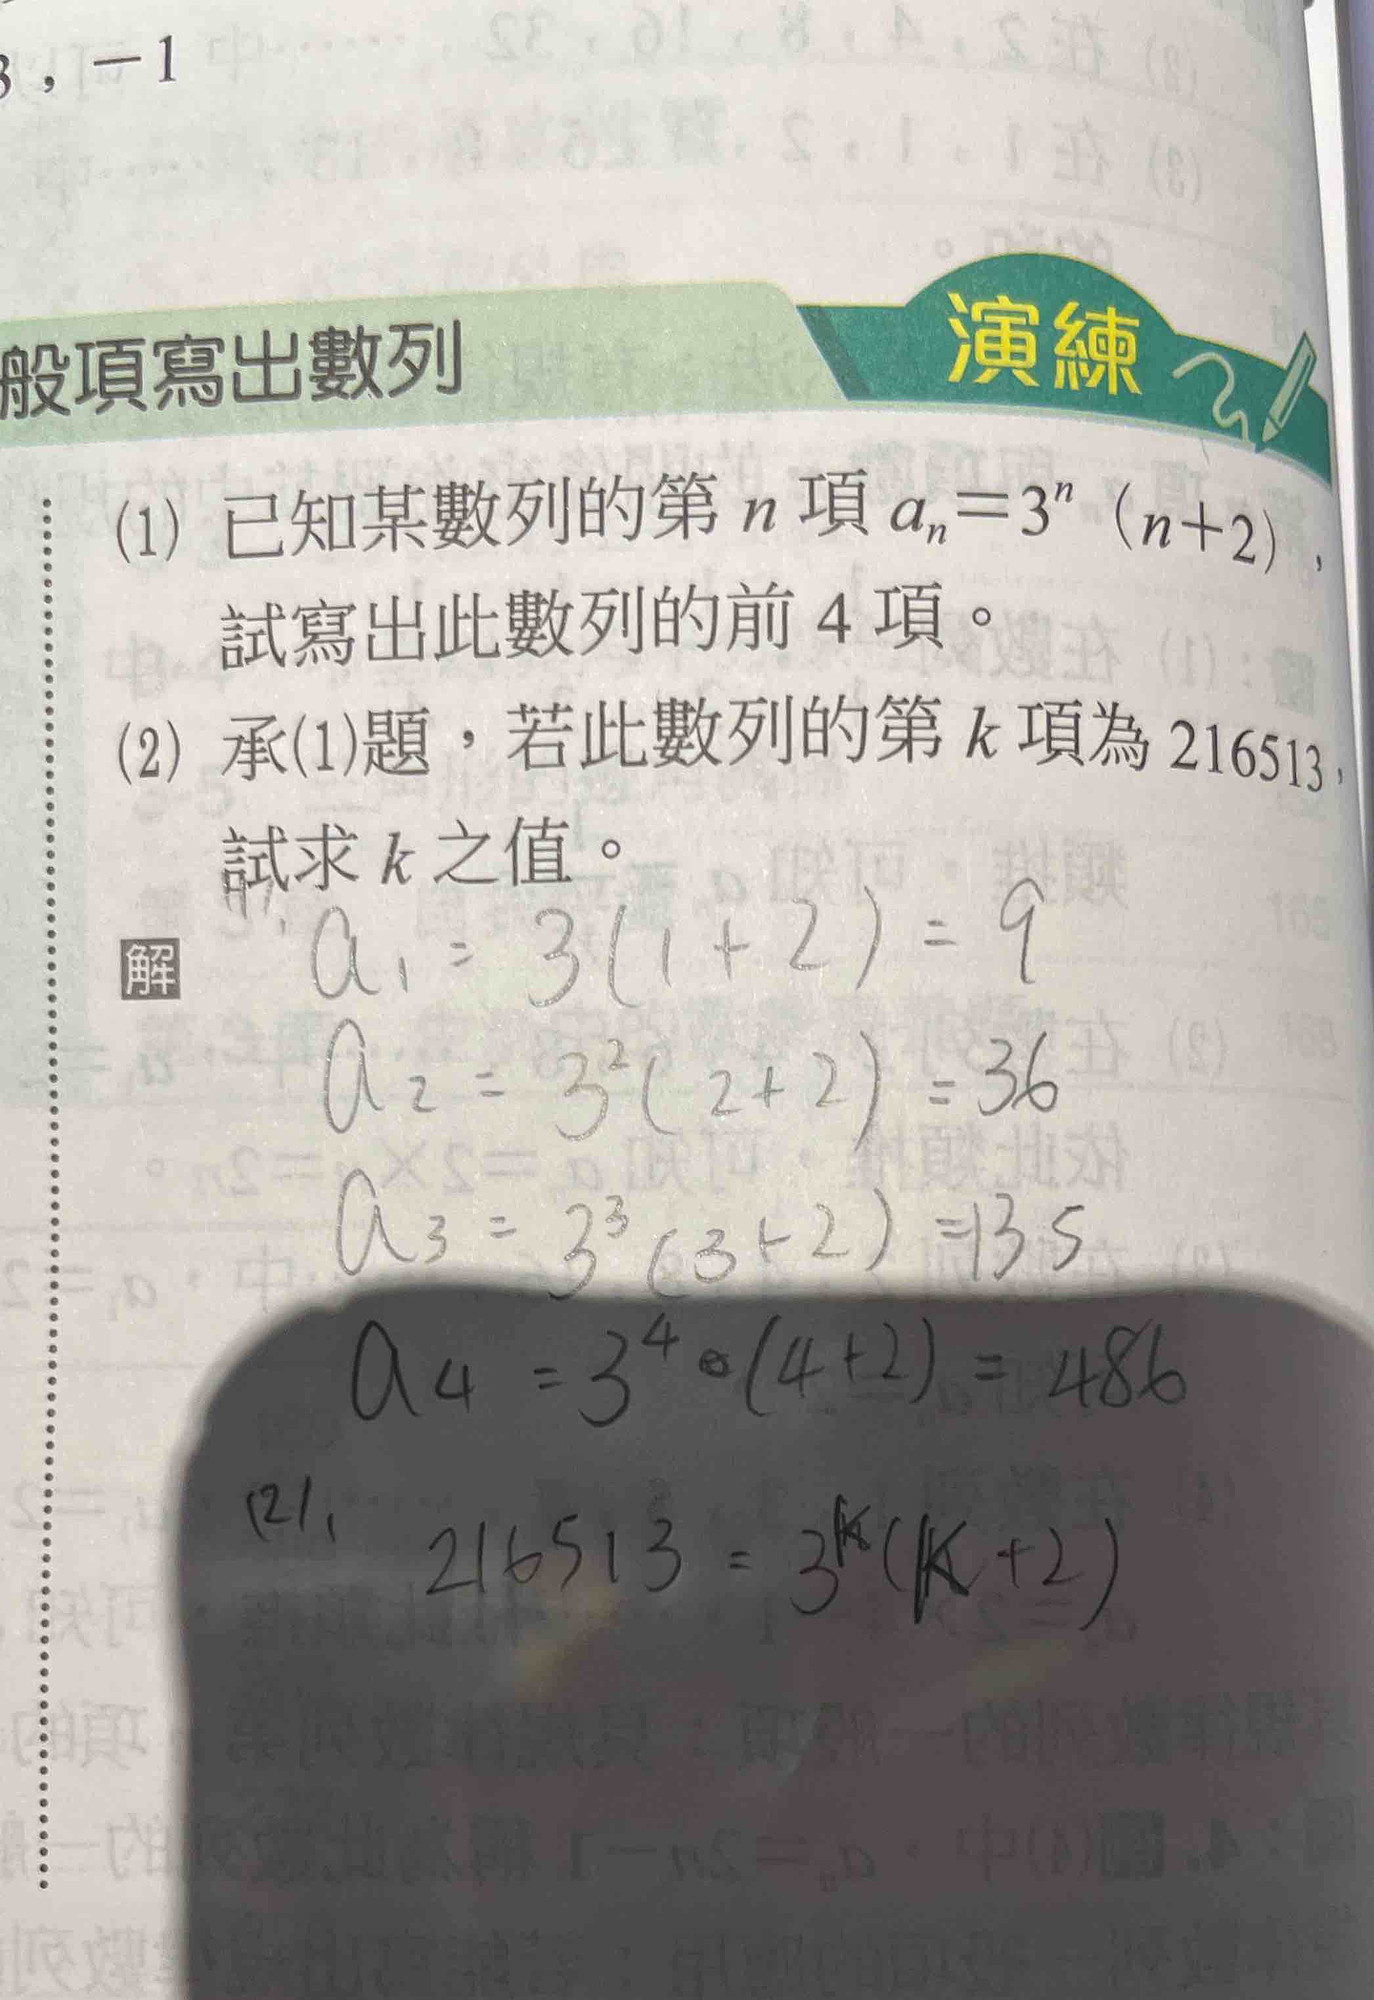 3，－1
般項寫出數列
演練
(1) 已知某數列的第 n 項 aₙ＝3ⁿ（n＋2），
試寫出此數列的前 4 項。
(2) 承(1)題，若此數列的第 k 項為 216513，
試求 k 之值。
解
(1).
a₁ = 3(1+2) = 9
a₂ = 3²(2+2) = 36
a₃ = 3³(3+2) = 135
a₄ = 3⁴·(4+2) = 486
(2).
216513 = 3ᵏ(k+2)